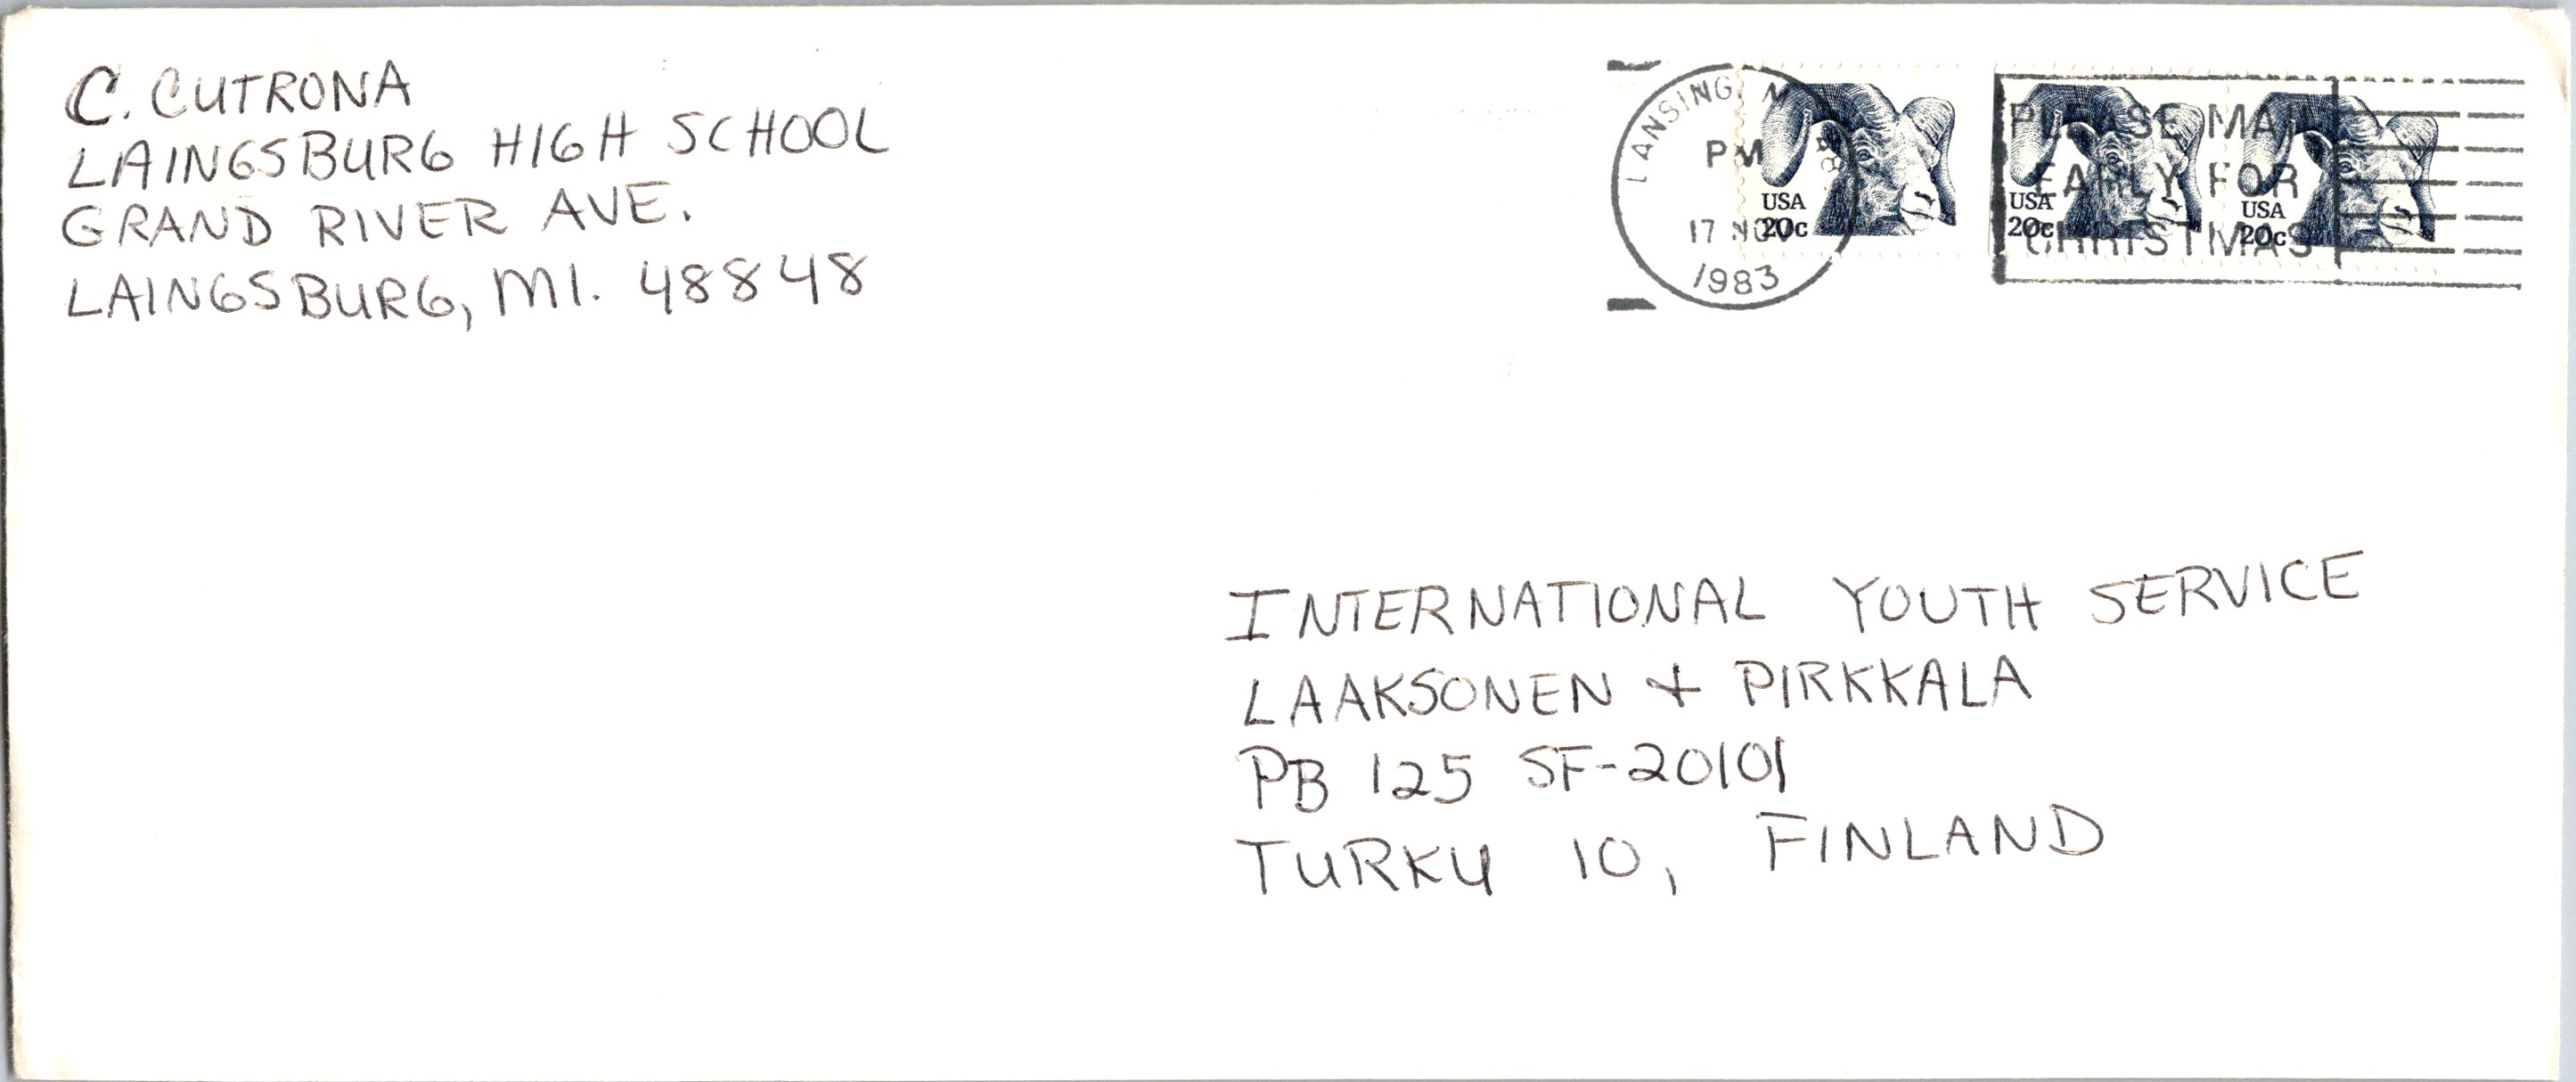 C. CUTRONA
LAINGSBURG HIGH SCHOOL
GRAND RIVER AVE.
LAINGSBURG, MI. 48848
LANSING, M
PM
17 NOV
1983
USA
20c
USA
20c
USA
20c
PLEASE MAIL
EARLY FOR
CHRISTMAS
INTERNATIONAL YOUTH SERVICE
LAAKSONEN + PIRKKALA
PB 125 SF-20101
TURKU 10, FINLAND